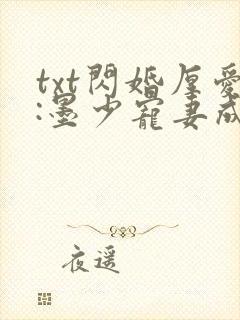 txt閃婚厚愛
:墨少寵妻成
夜遥